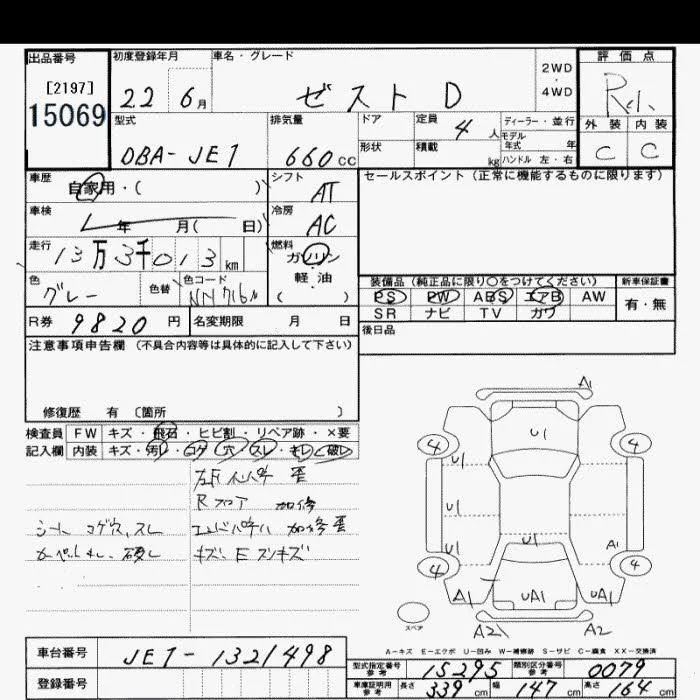 出品番号 初度登録年月 車名・グレード 評価点
[2197] 22 6月 ゼスト D 2WD・4WD R
15069 外装 内装
型式 排気量 ドア 定員 4人 ディーラー・並行 C C
DBA-JE1 660cc 形状 積載 kg モデル年式 年 ハンドル 左・右
車歴 自家用・( ) シフト AT セールスポイント(正常に機能するものに限ります)
車検 年 月( 日) 冷房 AC
走行 13万3千013km 燃料 ガソリン・軽油 ( )
色 グレー 色替 色コード 装備品(純正品に限り○をつけてください) 新車保証書
PS PW ABS エアB AW 有・無
SR ナビ TV カワ
R券 9820円 名変期限 月 日 後日品
注意事項申告欄(不具合内容等は具体的に記入して下さい)
修復歴 有 〔箇所 〕
検査員 FW キズ・飛石・ヒビ割・リペア跡・×要
記入欄 内装 キズ・汚レ・コゲ・穴・スレ・キレ・破レ
左Fインパネ 歪
Rフロア 加修
シート コゲ穴、スレ エンドパネル 加修歪
キズ・E
A1
U1
4 4
U1
U1
U1 U1 A1
4 4
A1 UA1 UA1
スペア A2 A2
A-キズ E-エクボ U-凹み W-補修跡 S-サビ C-腐食 XX-交換済
車台番号 JE1-1321498 型式指定番号参考 15295 類別区分番号参考 0079
登録番号 車庫証明用参考 長さ 339cm 幅 147cm 高さ 164cm